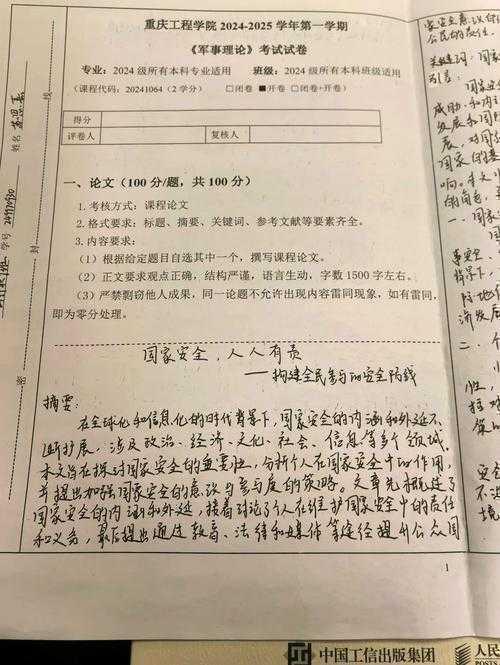 重庆工程学院 2024-2025 学年第一学期
《军事理论》考试试卷
专业：2024 级所有本科专业适用 班级：2024 级所有本科班级适用
(课程代码：20241064（2 学分） □闭卷 ■开卷 □闭卷+开卷)
得分
评卷人 复核人
一、论文（100 分/题，共 100 分）
1. 考核方式：课程论文
2. 格式要求：标题、摘要、关键词、参考文献等要素齐全。
3. 内容要求：
（1）根据给定题目自选其中一个，撰写课程论文。
（2）正文要求观点正确，结构严谨，语言生动，字数 1500 字左右。
（3）严禁剽窃他人成果，同一论题不允许出现内容雷同现象，如有雷同，
即为零分处理。
国家安全，人人有责
——构建全民参与的安全防线
摘要：
在全球化和信息化的时代背景下，国家安全的内涵和外延不
断扩展，涉及政治、经济、文化、社会、信息等多个领域。
本文旨在探讨国家安全的重要性，分析个人在国家安全中的作用，
并提出加强国家安全的意识与参与度的策略。文章先概述了
国家安全的内涵和外延，接着讨论了个人在维护国家安全中的责任
和义务，最后提出通过教育、法律和媒体等途径提升公众国
1
姓名
学号
线
封
密
家安全意识
公民的责任。
关键词：国家
引言：
国家安
发展和国
国家的
响。本文
的角色，
一、国家
国
背景下，
济发展
二、个
性，
措
策
安全
不
境
中国工信出版集团
人民